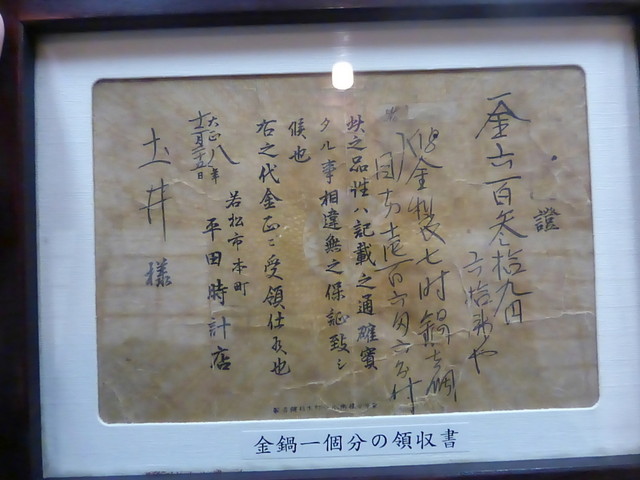 證
一金六百参拾九円
六拾銭也
純金製七吋鍋壱個
目方壱百六匁六分付
此之品性ハ記載之通確實
タル事相違無之保証致シ
候也
右之代金正ニ受領仕候也
大正八年
十一月二十五日
若松市本町
平田時計店
土井様
金鍋一個分の領収書